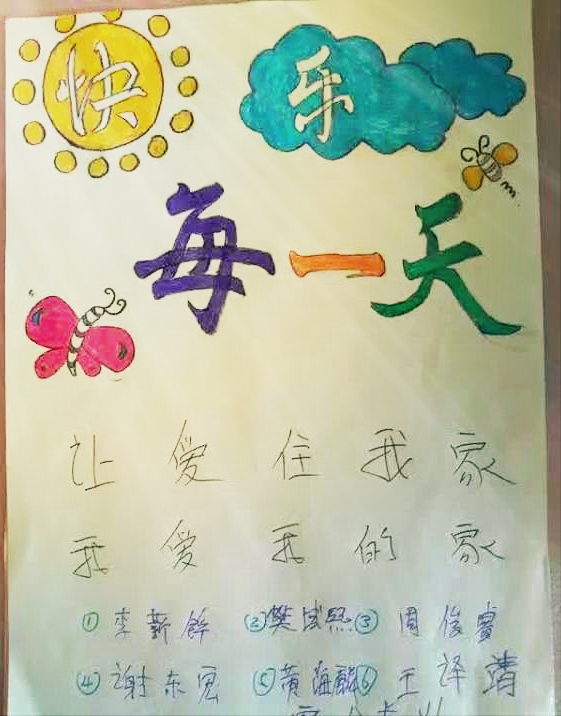 快乐
每一天
让爱住我家
我爱我的家
①李新馀 ②樊斌熙 ③周俊睿
④谢东宏 ⑤黄海麟 ⑥王译靖